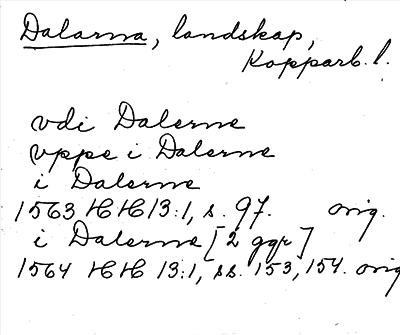 Dalarna, landskap,
Kopparb. l.
vdi Dalerne
vppe i Dalerne
i Dalerne
1563 HH 13:1, s. 97. orig.
i Dalerne [2 ggr]
1564 HH 13:1, ss. 153, 154. orig